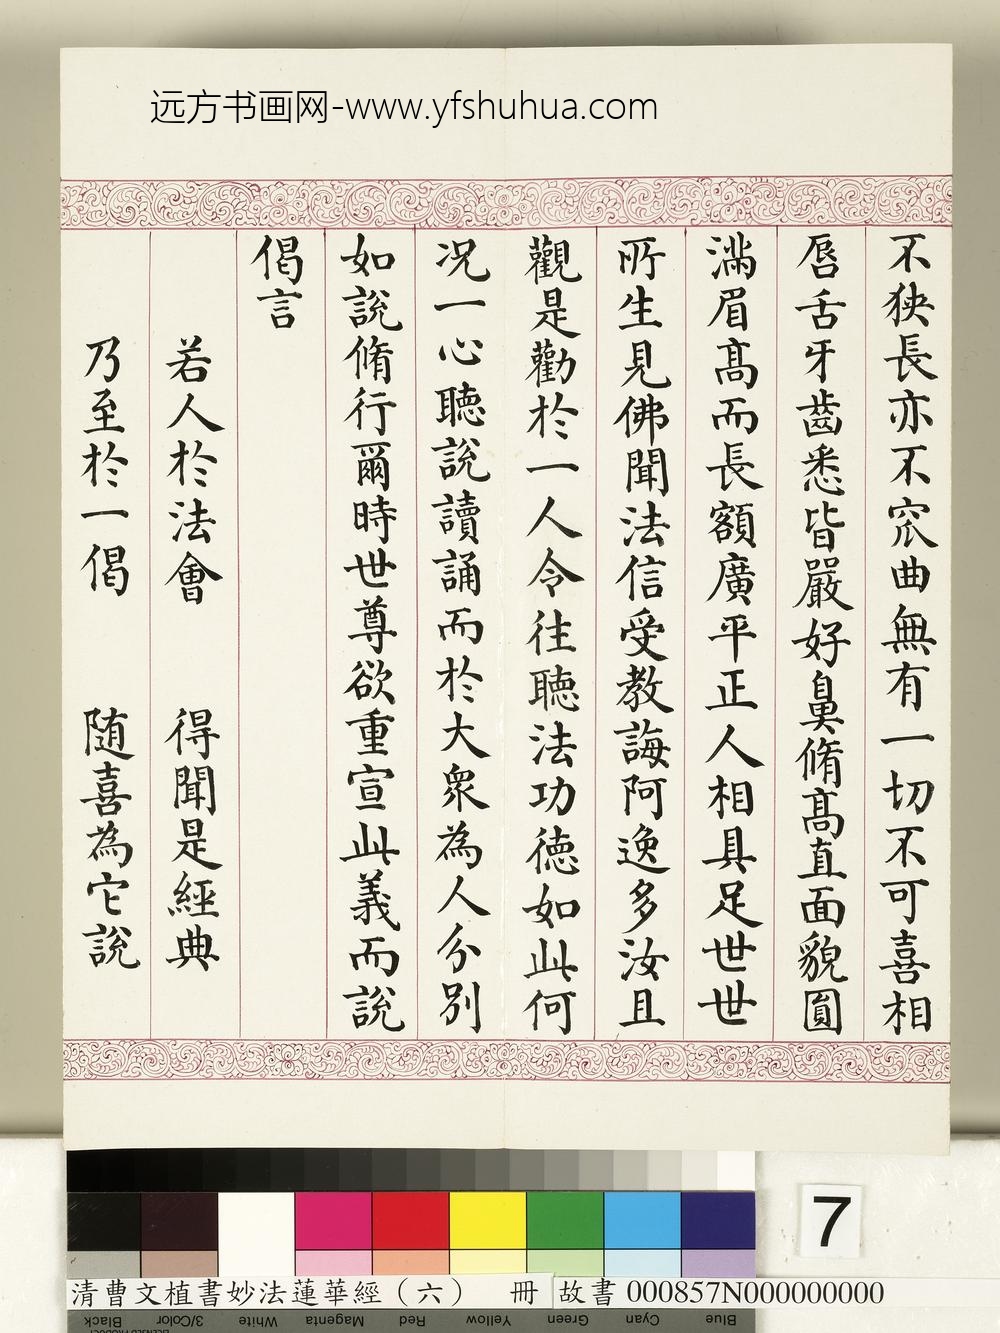 远方书画网-www.yfshuhua.com
不狹長亦不窊曲無有一切不可喜相
唇舌牙齒悉皆嚴好鼻脩髙直面貌圓
滿眉髙而長額廣平正人相具足世世
所生見佛聞法信受教誨阿逸多汝且
觀是勸於一人令往聴法功徳如此何
况一心聴說讀誦而於大衆為人分别
如說脩行爾時世尊欲重宣此義而說
偈言
若人於法會 得聞是經典
乃至於一偈 随喜為它說
7
清曹文植書妙法蓮華經（六） 冊 故書 000857N000000000
Black 3/Color White Magenta Red Yellow Green Cyan Blue